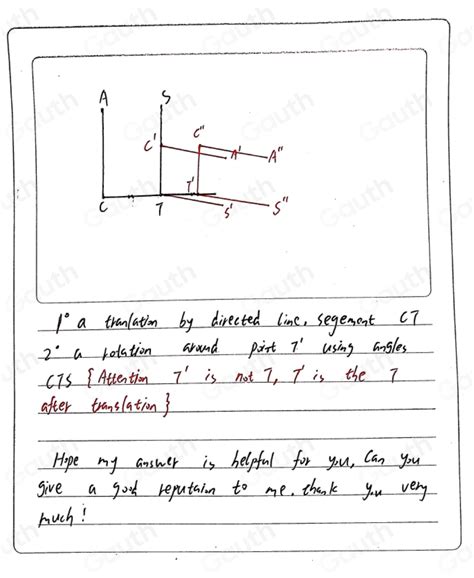 A
S
C'
C"
A'
A"
C
T
T'
S'
S"
1° a tranlation by directed line. segement CT
2° a rotation around point T' using angles
CTS {Attention T' is not T, T' is the T
after translation}
Hope my answer is helpful for you, Can you
give a good reputaion to me. thank you very
much!
Gauth